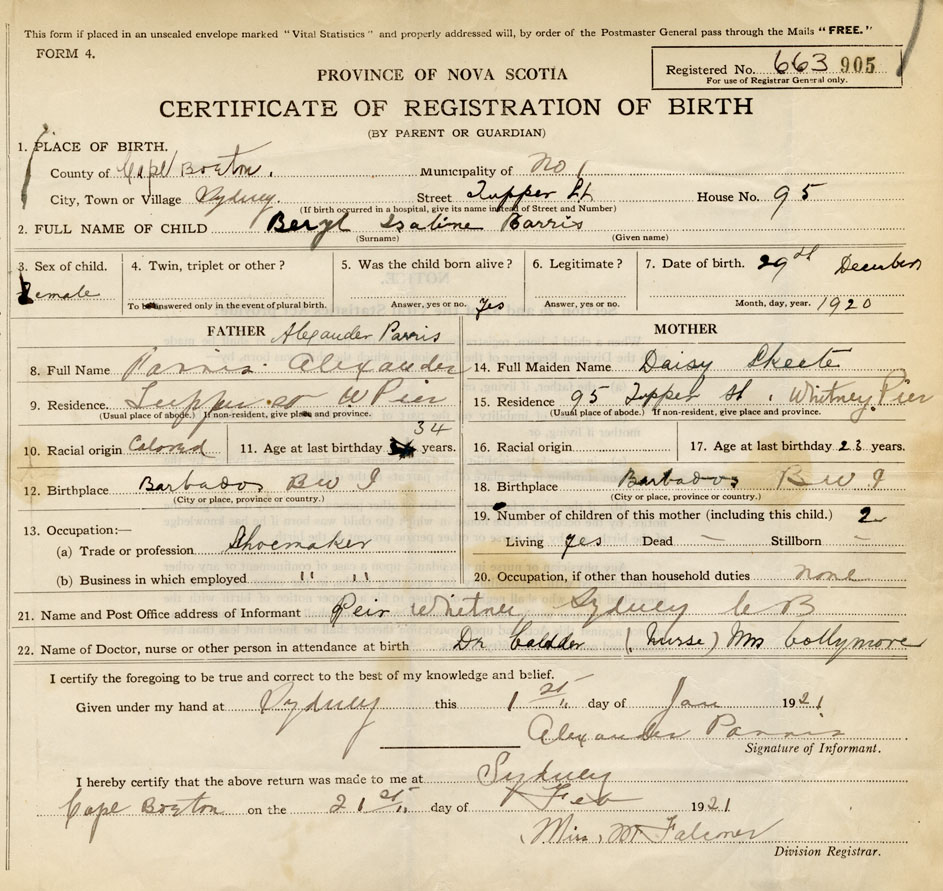 This form if placed in an unsealed envelope marked "Vital Statistics" and properly addressed will, by order of the Postmaster General pass through the Mails "FREE."
FORM 4.
Registered No. 663 905
For use of Registrar General only.
PROVINCE OF NOVA SCOTIA
CERTIFICATE OF REGISTRATION OF BIRTH
(BY PARENT OR GUARDIAN)
1. PLACE OF BIRTH.
County of Cape Breton. Municipality of No 1
City, Town or Village Sydney. Street Tupper St House No. 95
(If birth occurred in a hospital, give its name instead of Street and Number)
2. FULL NAME OF CHILD Beryl Isaline Parris
(Surname) (Given name)
3. Sex of child. 4. Twin, triplet or other? 5. Was the child born alive? 6. Legitimate? 7. Date of birth. 29 December
Female To be answered only in the event of plural birth. Answer, yes or no. Yes Answer, yes or no. Month, day, year. 1920
FATHER Alexander Parris MOTHER
8. Full Name Parris Alexander 14. Full Maiden Name Daisy Skeete
9. Residence. Tupper st W Pier 15. Residence 95 Tupper St. Whitney Pier
(Usual place of abode.) If non-resident, give place and province. (Usual place of abode.) If non-resident, give place and province.
10. Racial origin Colored 11. Age at last birthday 34 years. 16. Racial origin 17. Age at last birthday 23 years.
12. Birthplace Barbados B W I 18. Birthplace Barbados B W I
(City or place, province or country.) (City or place, province or country.)
13. Occupation:— 19. Number of children of this mother (including this child.) 2
(a) Trade or profession Shoemaker Living yes Dead – Stillborn –
(b) Business in which employed " " 20. Occupation, if other than household duties none
21. Name and Post Office address of Informant Peir Whitney Sydney C B
22. Name of Doctor, nurse or other person in attendance at birth Dr Caldder (Nurse) Mrs Collymore
I certify the foregoing to be true and correct to the best of my knowledge and belief.
Given under my hand at Sydney this 1st day of Jan 1921
Alexander Parris
Signature of Informant.
I hereby certify that the above return was made to me at Sydney
Cape Breton on the 21st day of Feb 1921
Miss. M Falconer
Division Registrar.